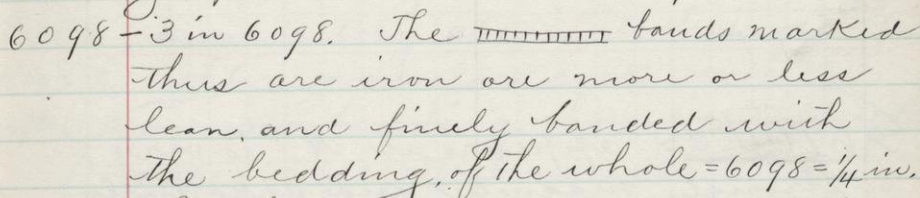 6098 - 3 in 6098. The bands marked
thus are iron ore more or less
lean, and finely banded with
the bedding, of the whole = 6098 = 1/4 in.